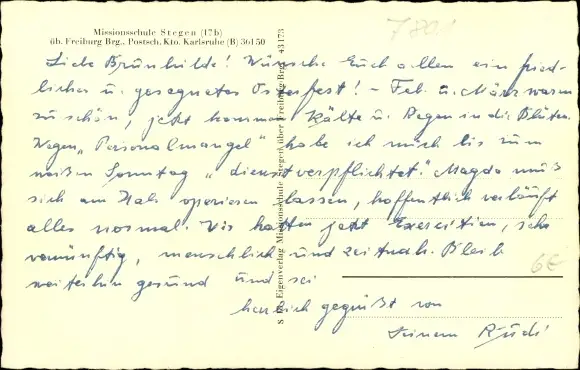 Missionsschule Stegen (17b)
üb. Freiburg Brg., Postsch. Kto. Karlsruhe (B) 36150
Liebe Brünhilde! Wünsche Euch allen ein fried-
liches u. gesegnetes Osterfest! – Feb. u. März waren
zu schön, jetzt kommen Kälte u. Regen in die Blüten.
Wegen „Personalmangel" habe ich mich bis zum
weißen Sonntag „dienstverpflichtet". Magda muß
sich am Hals operieren lassen, hoffentlich verläuft
alles normal. Wir hatten jetzt Exerzitien, sehr
vernünftig, menschlich und zeitnah. Bleib
weiterhin gesund und sei
herzlich gegrüßt von
Deinem Rudi
Eigenverlag Missionsschule Stegen über Freiburg Brg. 43173
6€